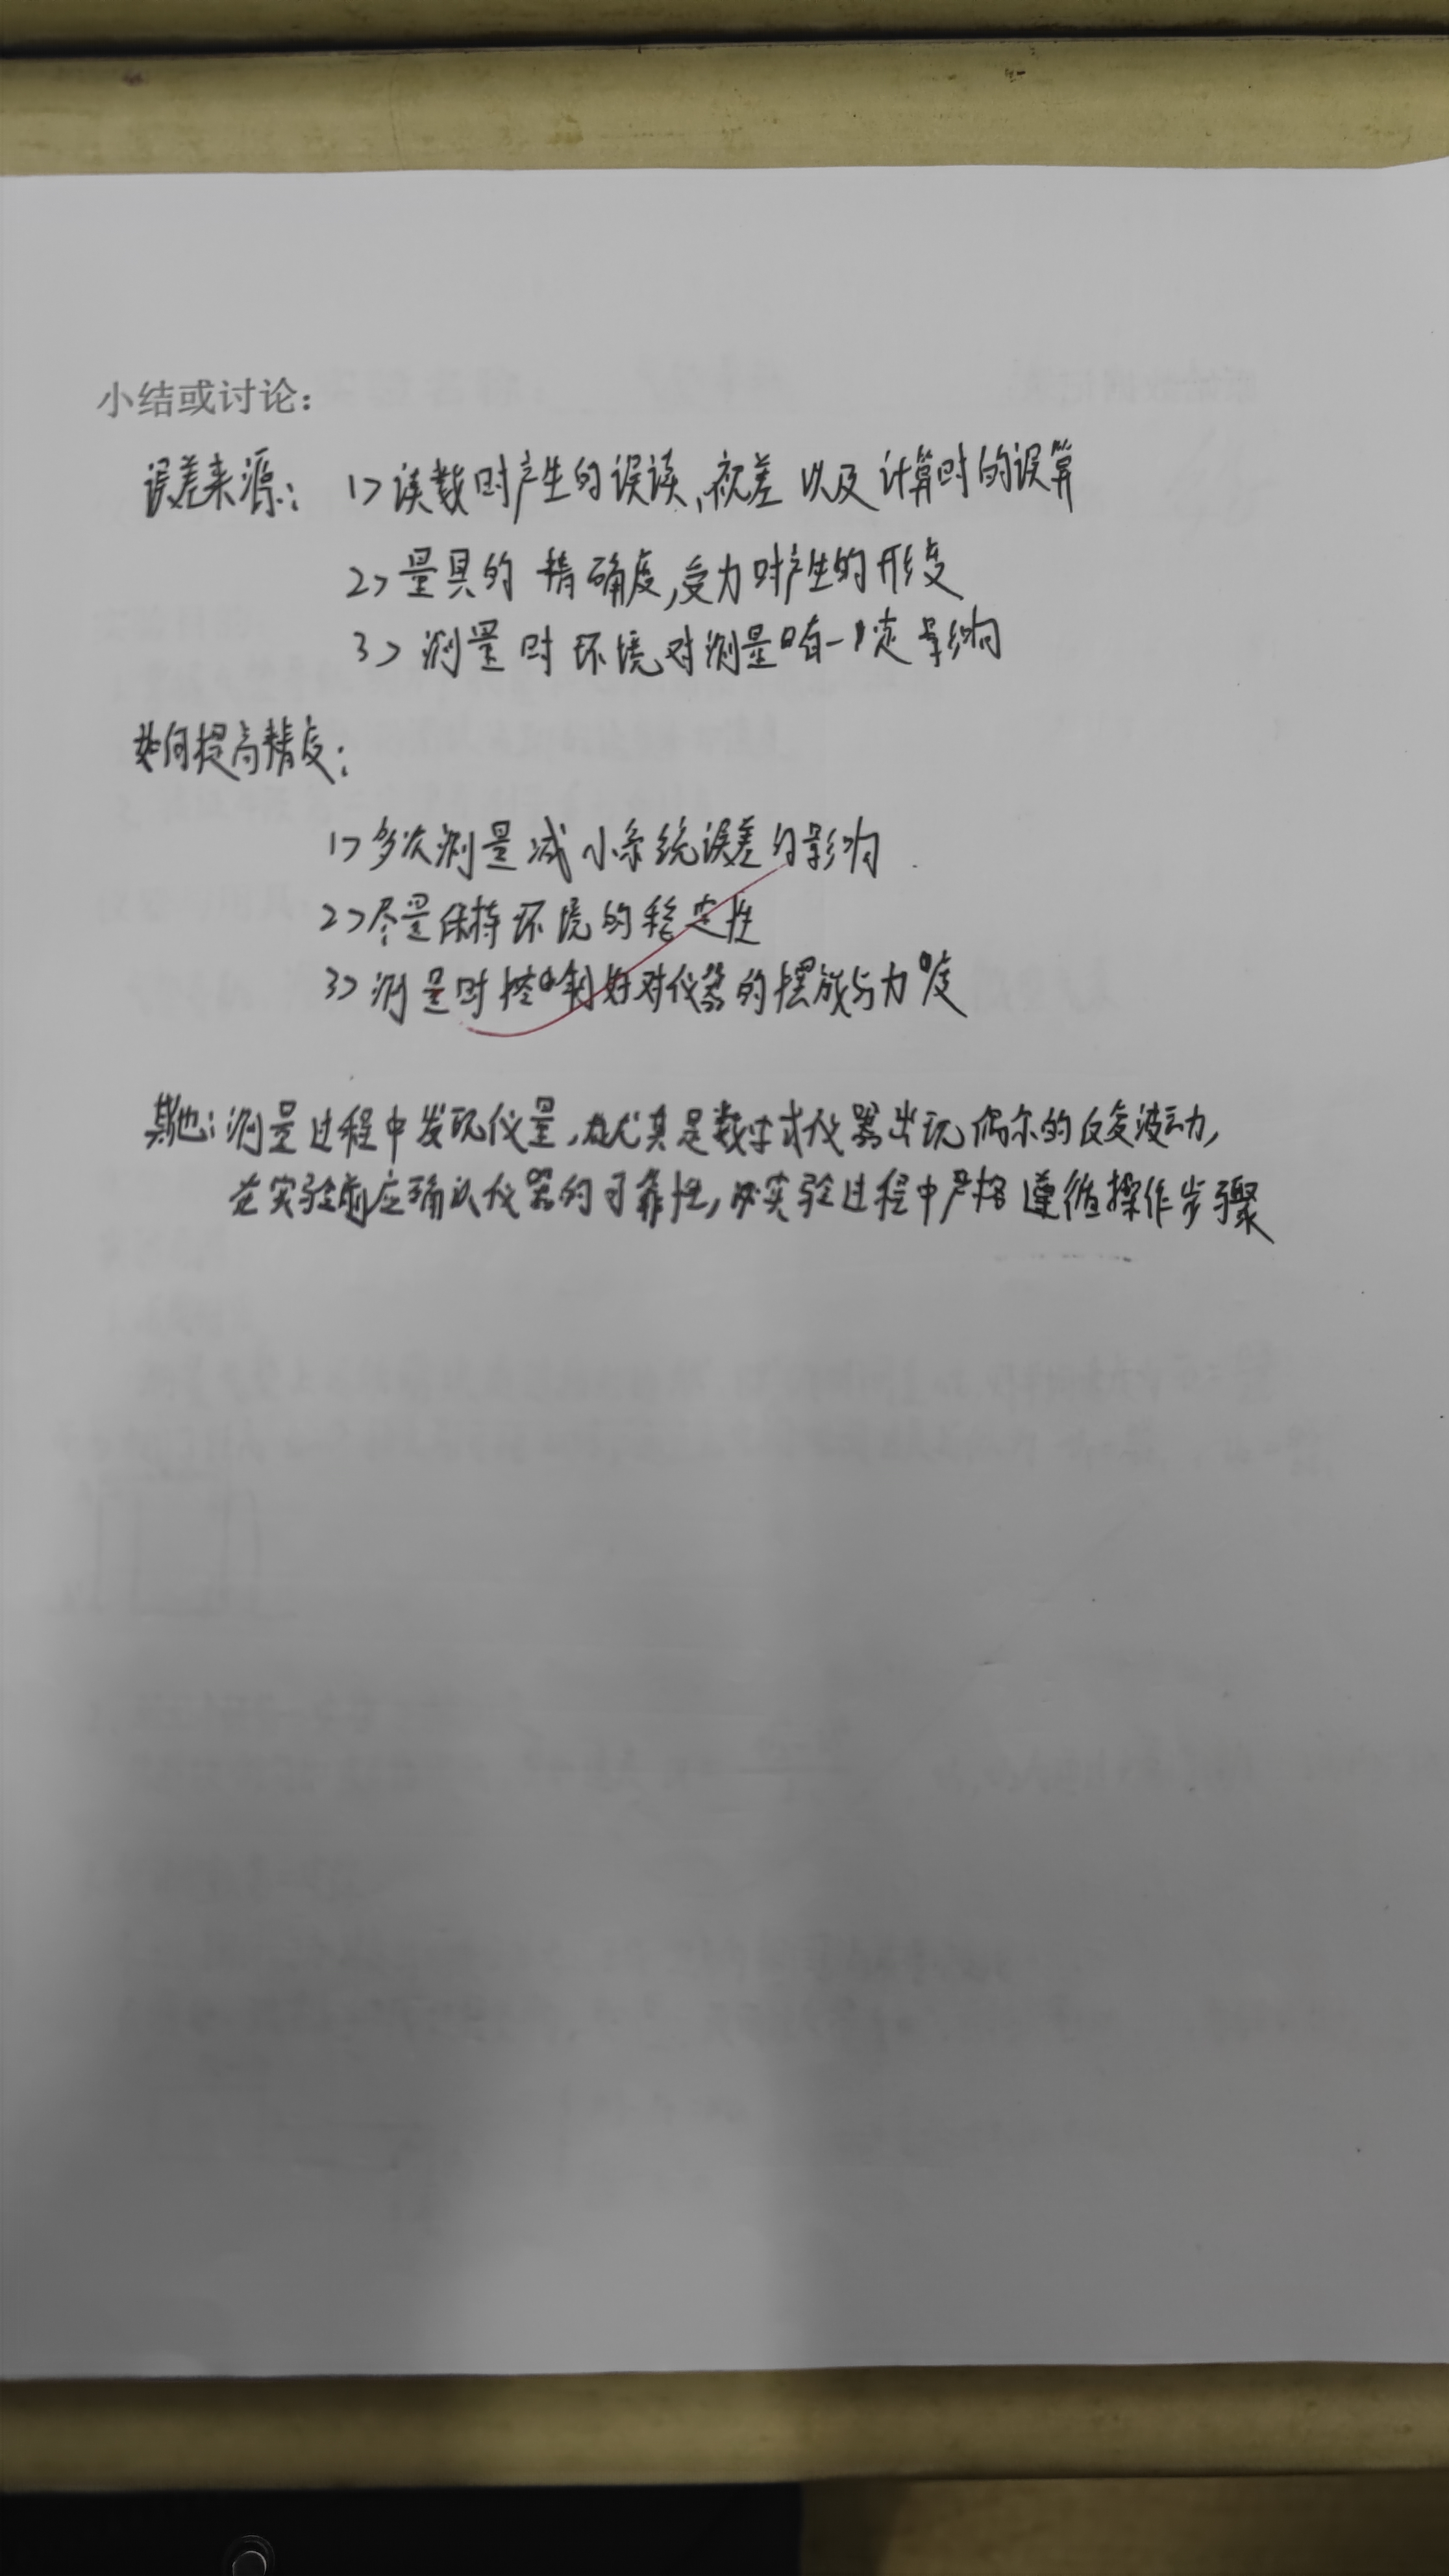 小结或讨论：
误差来源： 1> 读数时产生的误读、视差 以及 计算时的误算
2> 量具的 精确度，受力时产生的形变
3> 测量时 环境对测量有一定影响
如何提高精度：
1> 多次测量减小系统误差的影响
2> 尽量保持环境的稳定性
3> 测量时控制好对仪器的摆放与力度
其他：测量过程中发现仪量，尤其是数字式仪器出现偶尔的反复波动，
在实验前应确认仪器的可靠性，实验过程中严格遵循操作步骤